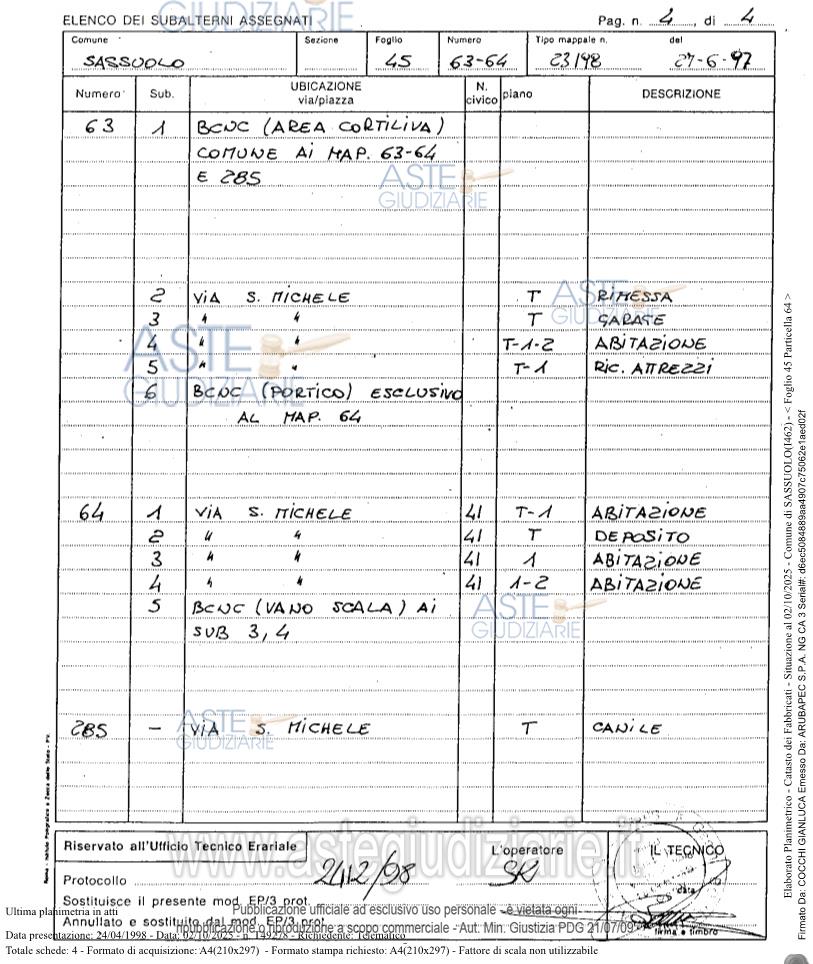 ELENCO DEI SUBALTERNI ASSEGNATI Pag. n. 4, di 4
Comune Sezione Foglio Numero Tipo mappale n. del
SASSUOLO 45 63-64 23198 27-6-97
Numero Sub. UBICAZIONE via/piazza N. civico piano DESCRIZIONE
63 1 BCNC (AREA CORTILIVA)
COMUNE Ai MAP. 63-64
E 285
2 ViA S. MiCHELE T RIMESSA
3 " " T GARAGE
4 " " T-1-2 ABITAZIONE
5 " " T-1 RIC. ATTREZZI
6 BCNC (PORTICO) ESCLUSIVO
AL MAP. 64
64 1 ViA S. MiCHELE 41 T-1 ABITAZIONE
2 " " 41 T DEPOSITO
3 " " 41 1 ABITAZIONE
4 " " 41 1-2 ABITAZIONE
5 BCNC (VANO SCALA) Ai
SUB 3,4
285 - ViA S. MiCHELE T CANILE
ASTE GIUDIZIARIE
ASTE GIUDIZIARIE
ASTE GIUDIZIARIE
ASTE GIUDIZIARIE
ASTE GIUDIZIARIE
ASTE GIUDIZIARIE
www.astegiudiziarie.it
Riservato all'Ufficio Tecnico Erariale L'operatore IL TECNICO
Protocollo 2412/98 data
Sostituisce il presente mod. EP/3 prot.
Annullato e sostituito dal mod. EP/3 prot. firma e timbro
Ultima planimetria in atti
Pubblicazione ufficiale ad esclusivo uso personale - è vietata ogni
ripubblicazione o riproduzione a scopo commerciale - Aut. Min. Giustizia PDG 21/07/09
Data presentazione: 24/04/1998 - Data: 02/10/2025 - n. 149278 - Richiedente: Telematico
Totale schede: 4 - Formato di acquisizione: A4(210x297) - Formato stampa richiesto: A4(210x297) - Fattore di scala non utilizzabile
Elaborato Planimetrico - Catasto dei Fabbricati - Situazione al 02/10/2025 - Comune di SASSUOLO(I462) - < Foglio 45 Particella 64 >
Firmato Da: COCCHI GIANLUCA Emesso Da: ARUBAPEC S.P.A. NG CA 3 Serial#: d6ec5084889aa4907c75062e1aed02f